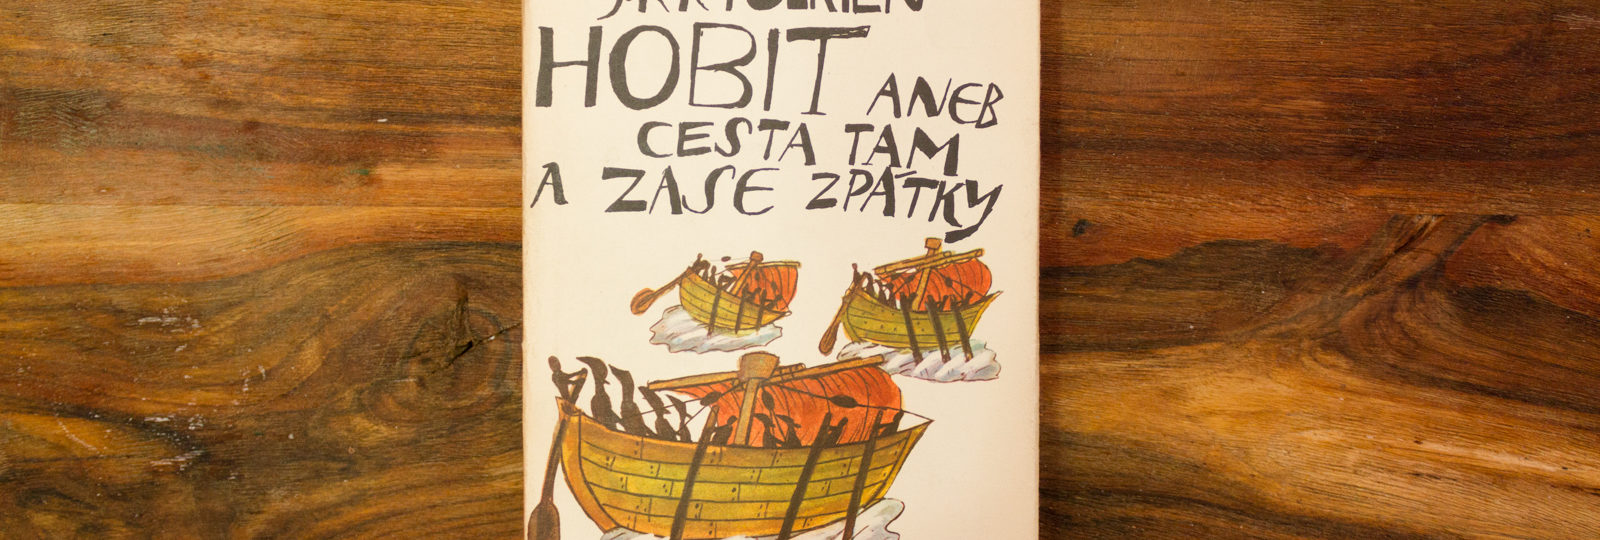 J.R.R. TOLKIEN
HOBIT ANEB
CESTA TAM
A ZASE ZPÁTKY